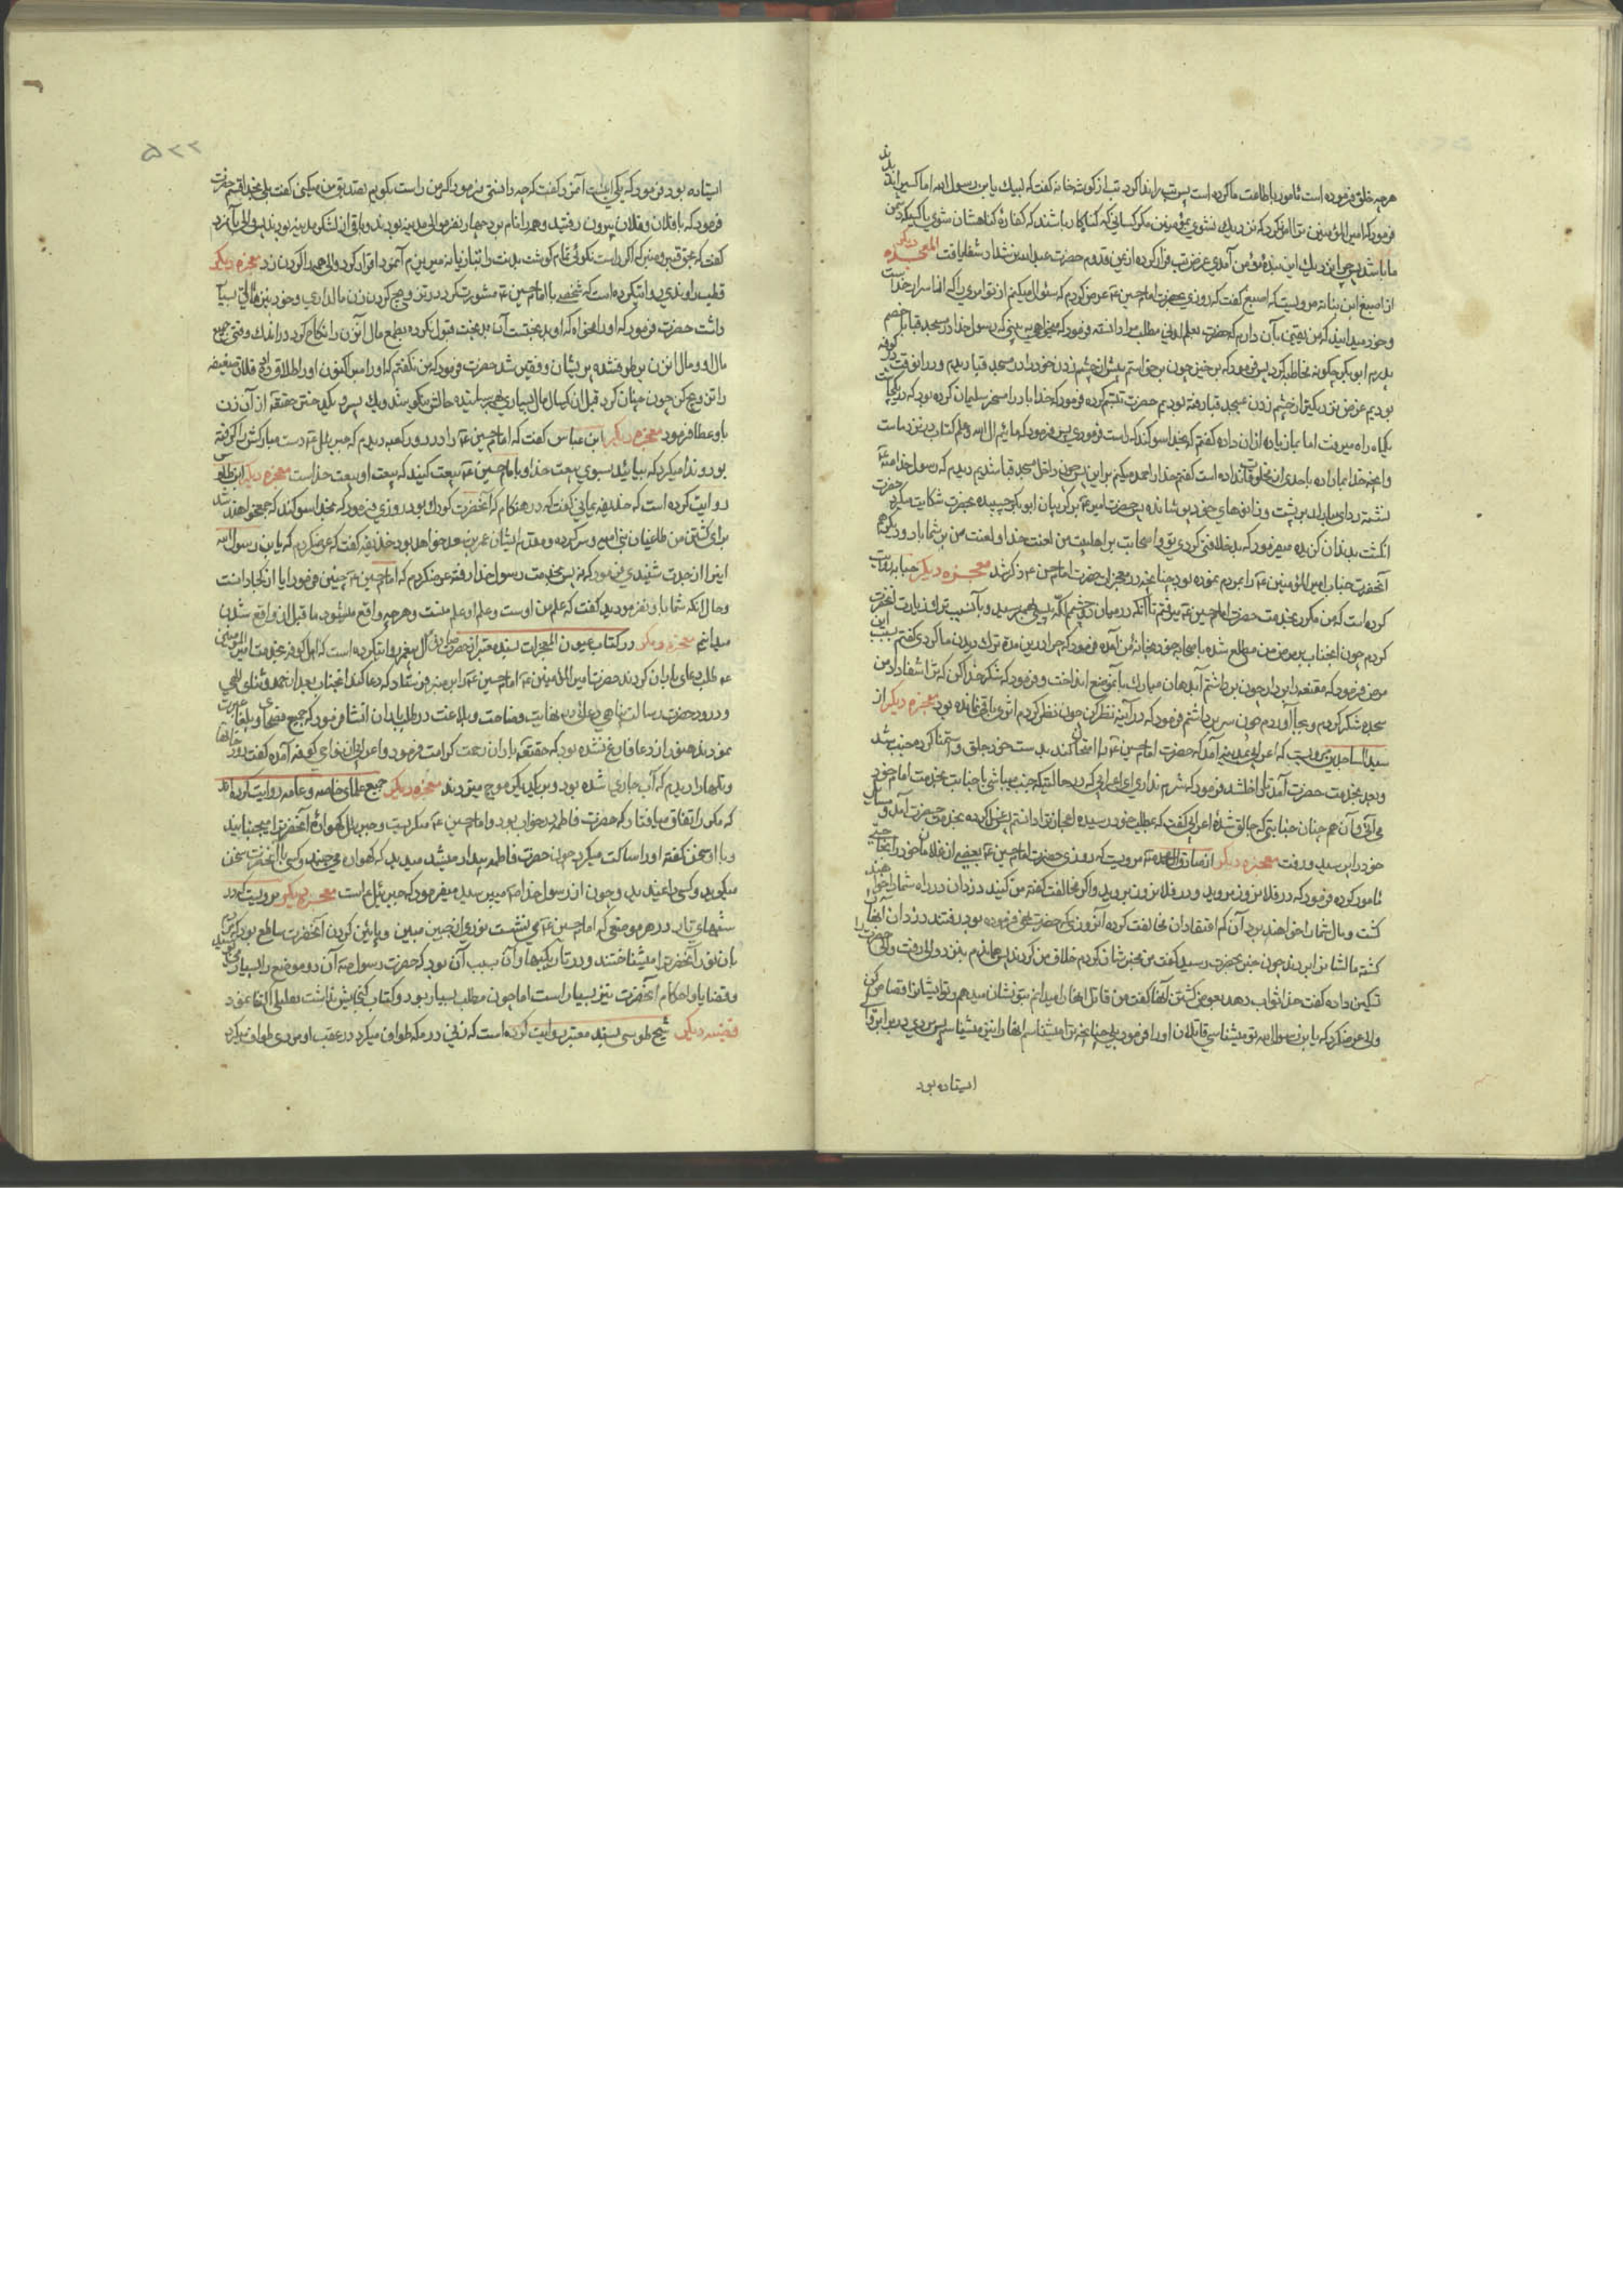 هرچه خلق فرموده است مامور باطاعت ما کرده است پس تب را ندا کرد تب از گوشه خانه گفت که لبیک یابن رسول الله اما کسیرا ندیدند
فرمود که امیرالمؤمنین ترا امر نکرد که نزدیک نشوی بمؤمنین مگر کسانی که گناهکار باشند که کفاره گناهشان شوی یا کسیکه دشمن
ما باشد پس چرا نزدیک این بنده مؤمن آمدی عرض تب فرار کرده از یمن قدوم حضرت عبدالله بن شداد شفا یافت المعجزه دیگر
از اصبغ ابن نباته مرویست که اصبغ گفت که روزی بحضرت امام حسین ع عرض کردم که سئوال میکنم از تو امری را که از اسرار خداست
و خود میدانید که من یقین بآن دارم که حضرت بعلم مطلب مرا دانسته فرمود که میخواهی ببینی که رسول خدا در مسجد قبا با خصم
پدرم ابوبکر چگونه مخاطبه کرد پس فرمود که برخیز چون برخواستم پیش از چشم زدن خود را در مسجد قبا دیدم و در آنوقت در کوفه
بودیم عرض نزدیکتر از چشم زدن بمسجد قبا رفته بودیم حضرت تبسم کرده فرمود که خدا باد را مسخر سلیمان کرده بود که در یکوقت
یکماه راه میرفت اما بما زیاده از آن داده گفتم که بخدا سوگند که راست فرمودی پس فرمود که مائیم آل الله و علم کتاب در نزد ماست
و آنچه خدا بما داده باحدی از مخلوقات نداده است گفتم خدا را حمد میکنم بر این پس چون داخل مسجد قبا شدیم دیدم که رسول خدا ص
نشسته ردای مبارک بر پشت و زانوهای خود پوشانده پس حضرت امیر ع گریبان ابوبکر چسپیده بحضرت شکایت میکرد حضرت
انگشت بدندان گزیده میفرمود که بد خلافتی کردی تو و اصحابت بر اهلبیت من لعنت خدا و لعنت من بر شما باد و دیگر هم
آنحضرت جناب امیرالمؤمنین ع را بمردم نموده بود چنانچه در معجزات حضرت امام حسن ع ذکر شد معجزه دیگر حبابه روایت
کرده است که من مکرر بخدمت حضرت امام حسین ع میرفتم تا آنکه در میان دو چشم لکه پیسی بهم رسید و باینسبب ترک زیارت آنحضرت
کردم چون آنجناب بر مرض من مطلع شده با اصحاب خود بخانه من آمده فرمود که چرا در این مدة ترک دیدن ما کردی گفتم بسبب این
مرض فرمود که مقنعه را بردار چون برداشتم آب دهان مبارک بآنموضع انداخت و فرمود که شکر خدا کن که ترا شفا داد من
سجده شکر کردم و بجا آوردم چون سر برداشتم فرمود که در آئینه نظر کن چون نظر کردم اثری باقی نمانده بود معجزه دیگر از
سید الساجدین مرویست که اعرابی بمدینه آمد که حضرت امام حسین ع را امتحان کند بدست خود جلق و استمنا کرده جنب شد
و بعد بخدمت حضرت آمد تا داخل شد فرمود که شرم نداری ای اعرابی که در حالتیکه جنب میباشی با جنابت بخدمت امام خود
می آئی
خود را پرسید و رفت معجزه دیگر از صادق آل محمد ع مرویست که روزی حضرت امام حسین ع بعضی از غلامان خود را بجائی
مامور کرده فرمود که در فلان روز مروید و در فلان روز بروید و اگر مخالفت گفته من کنید دزدان در راه شما را خواهند
کشت و مال شما را خواهند برد آن کم اعتقادان مخالفت کرده آنروزی که حضرت نهی فرموده بود رفتند دزدان آنها را
کشته مالشان را بردند چون خبر بحضرت رسید گفت من مخبرشان کردم خلاف من کردند پس همان دم بنزد والی رفت والی حضرت را
تمکین داده گفت خدا ثواب دهد بعوض کشتن آنها گفت من قاتل آنها را میدانم بتو نشان میدهم و تو ایشان را قصاص کن
والی عرض کرد که یابن رسول الله تو میشناسی قاتلان او را فرمود بلی چنانچه ترا میشناسم آنها را نیز میشناسم پس مردی در برابر والی
ایستاده بود
۵۲۲
ایستاده بود فرمود که یکی اینست آنمرد گفت که چه دانستی فرمود اگر من راست بگویم تصدیق من میکنی گفت بلی بخدا قسم حضرت
فرمود که با فلان و فلان بیرون رفتید و همه را نام برد چهار نفر موالی مدینه بودند و باقی از لشکر مدینه بودند پس والی بآنمرد
گفت که بحق قبر و منبر که اگر راست نگوئی تمام گوشت بدنت را بتازیانه میریزم آنمرد اقرار کرد والی همه را گردن زد معجزه دیگر
قطب راوندی روایت کرده است که شخصی با امام حسین ع مشورت کرد در تزویج کردن زن مالداری و خود نیز مال بسیار
داشت حضرت فرمود که او را مخواه که او بدبختست آن بدبخت قبول نکرده بطمع مال آنزن را نکاح کرد در اندک وقتی جمیع
مال او و مال آنزن بر طرف شده پریشان و فقیر شد حضرت فرمود که من نگفتم که او را مگیر اکنون او را طلاق ده و فلان ضعیفه
را تزویج کن چون چنان کرد قبل از یکسال مال بسیاری بهم رسانیده حالش نیکو شد و یک پسر و یکدختر حقتعالی از آن زن
باو عطا فرمود معجزه دیگر ابن عباس گفت که امام حسین ع را در در کعبه دیدم که جبرئیل ع دست مبارکش را گرفته
بود و ندا میکرد که بیائید بسوی بیعت خدا و با امام حسین ع بیعت کنید که بیعت او بیعت خداست معجزه دیگر
روایت کرده است که حذیفه یمانی گفت که در هنگام که آنحضرت کودک بود روزی فرمود که بخدا سوگند که جمع خواهند شد
برای کشتن من طاغیان بنی امیه و سرکرده و مقدم ایشان عمر بن سعد خواهد بود حذیفه گفت که عرض کردم که یابن رسول الله
اینرا از جدت شنیدی فرمود که نه پس بخدمت رسول خدا رفته عرض کردم که امام حسین ع چنین فرمود آیا از کجا دانست
و حال آنکه شما باو نفرمودید گفت که علم من اوست و علم او علم منست و هرچه واقع میشود ما قبل از واقع شدن
میدانیم معجزه دیگر در کتاب عیون المعجزات بسند معتبر از حضرت صادق آل پیغمبر روایت کرده است که اهل کوفه بخدمت امیرالمؤمنین
ع طلب دعای باران کردند حضرت امیرالمؤمنین ع امام حسین ع را بر منبر فرستاد که دعا کند آنجناب بعد از حمد و ثنای الهی
و درود حضرت رسالت پناهی دعائی در نهایت فصاحت و بلاغت در طلب باران انشا فرمود که جمیع فصحا و بلغا عبرت
نمودند هنوز از دعا فارغ نشده بود که حقتعالی باران رحمت کرامت فرمود و اعرابی از نواحی کوفه آمده گفت رودخانها
و تلها را دیدم که آب جاری شده بود و بر یکدیگر موج میزدند معجزه دیگر جمیع علمای خاصه و عامه روایت کرده اند
که مکرر اتفاق میافتاد که حضرت فاطمه در خواب بود و امام حسین ع میگریست و جبرئیل گهواره آنحضرت را میجنبانید
و با او سخن گفته او را ساکت میکرد چون حضرت فاطمه بیدار میشد میدید که گهواره میجنبد و کسی با آنحضرت سخن
میگوید و کسی را نمیدید و چون از رسول خدا ص میپرسید میفرمود که جبرئیل ع است معجزه دیگر مرویست که در
شبهای تار در هر موضعی که امام حسین ع می نشست نوری از جبین مبین و پائین گردن آنحضرت ساطع بود که مردم
بآن نور آنحضرت را میشناختند و در تاریکیها و آن بسبب آن بود که حضرت رسول ص آن دو موضع را بسیار می بوسید
و قضایا و احکام آنحضرت نیز بسیار است اما چون مطلب بسیار بود و کتاب گنجایش نداشت بقلیلی اکتفا نمود
قضیه دیگر شیخ طوسی بسند معتبر روایت کرده است که زنی در مکه طواف میکرد در عقب او مردی طواف میکرد